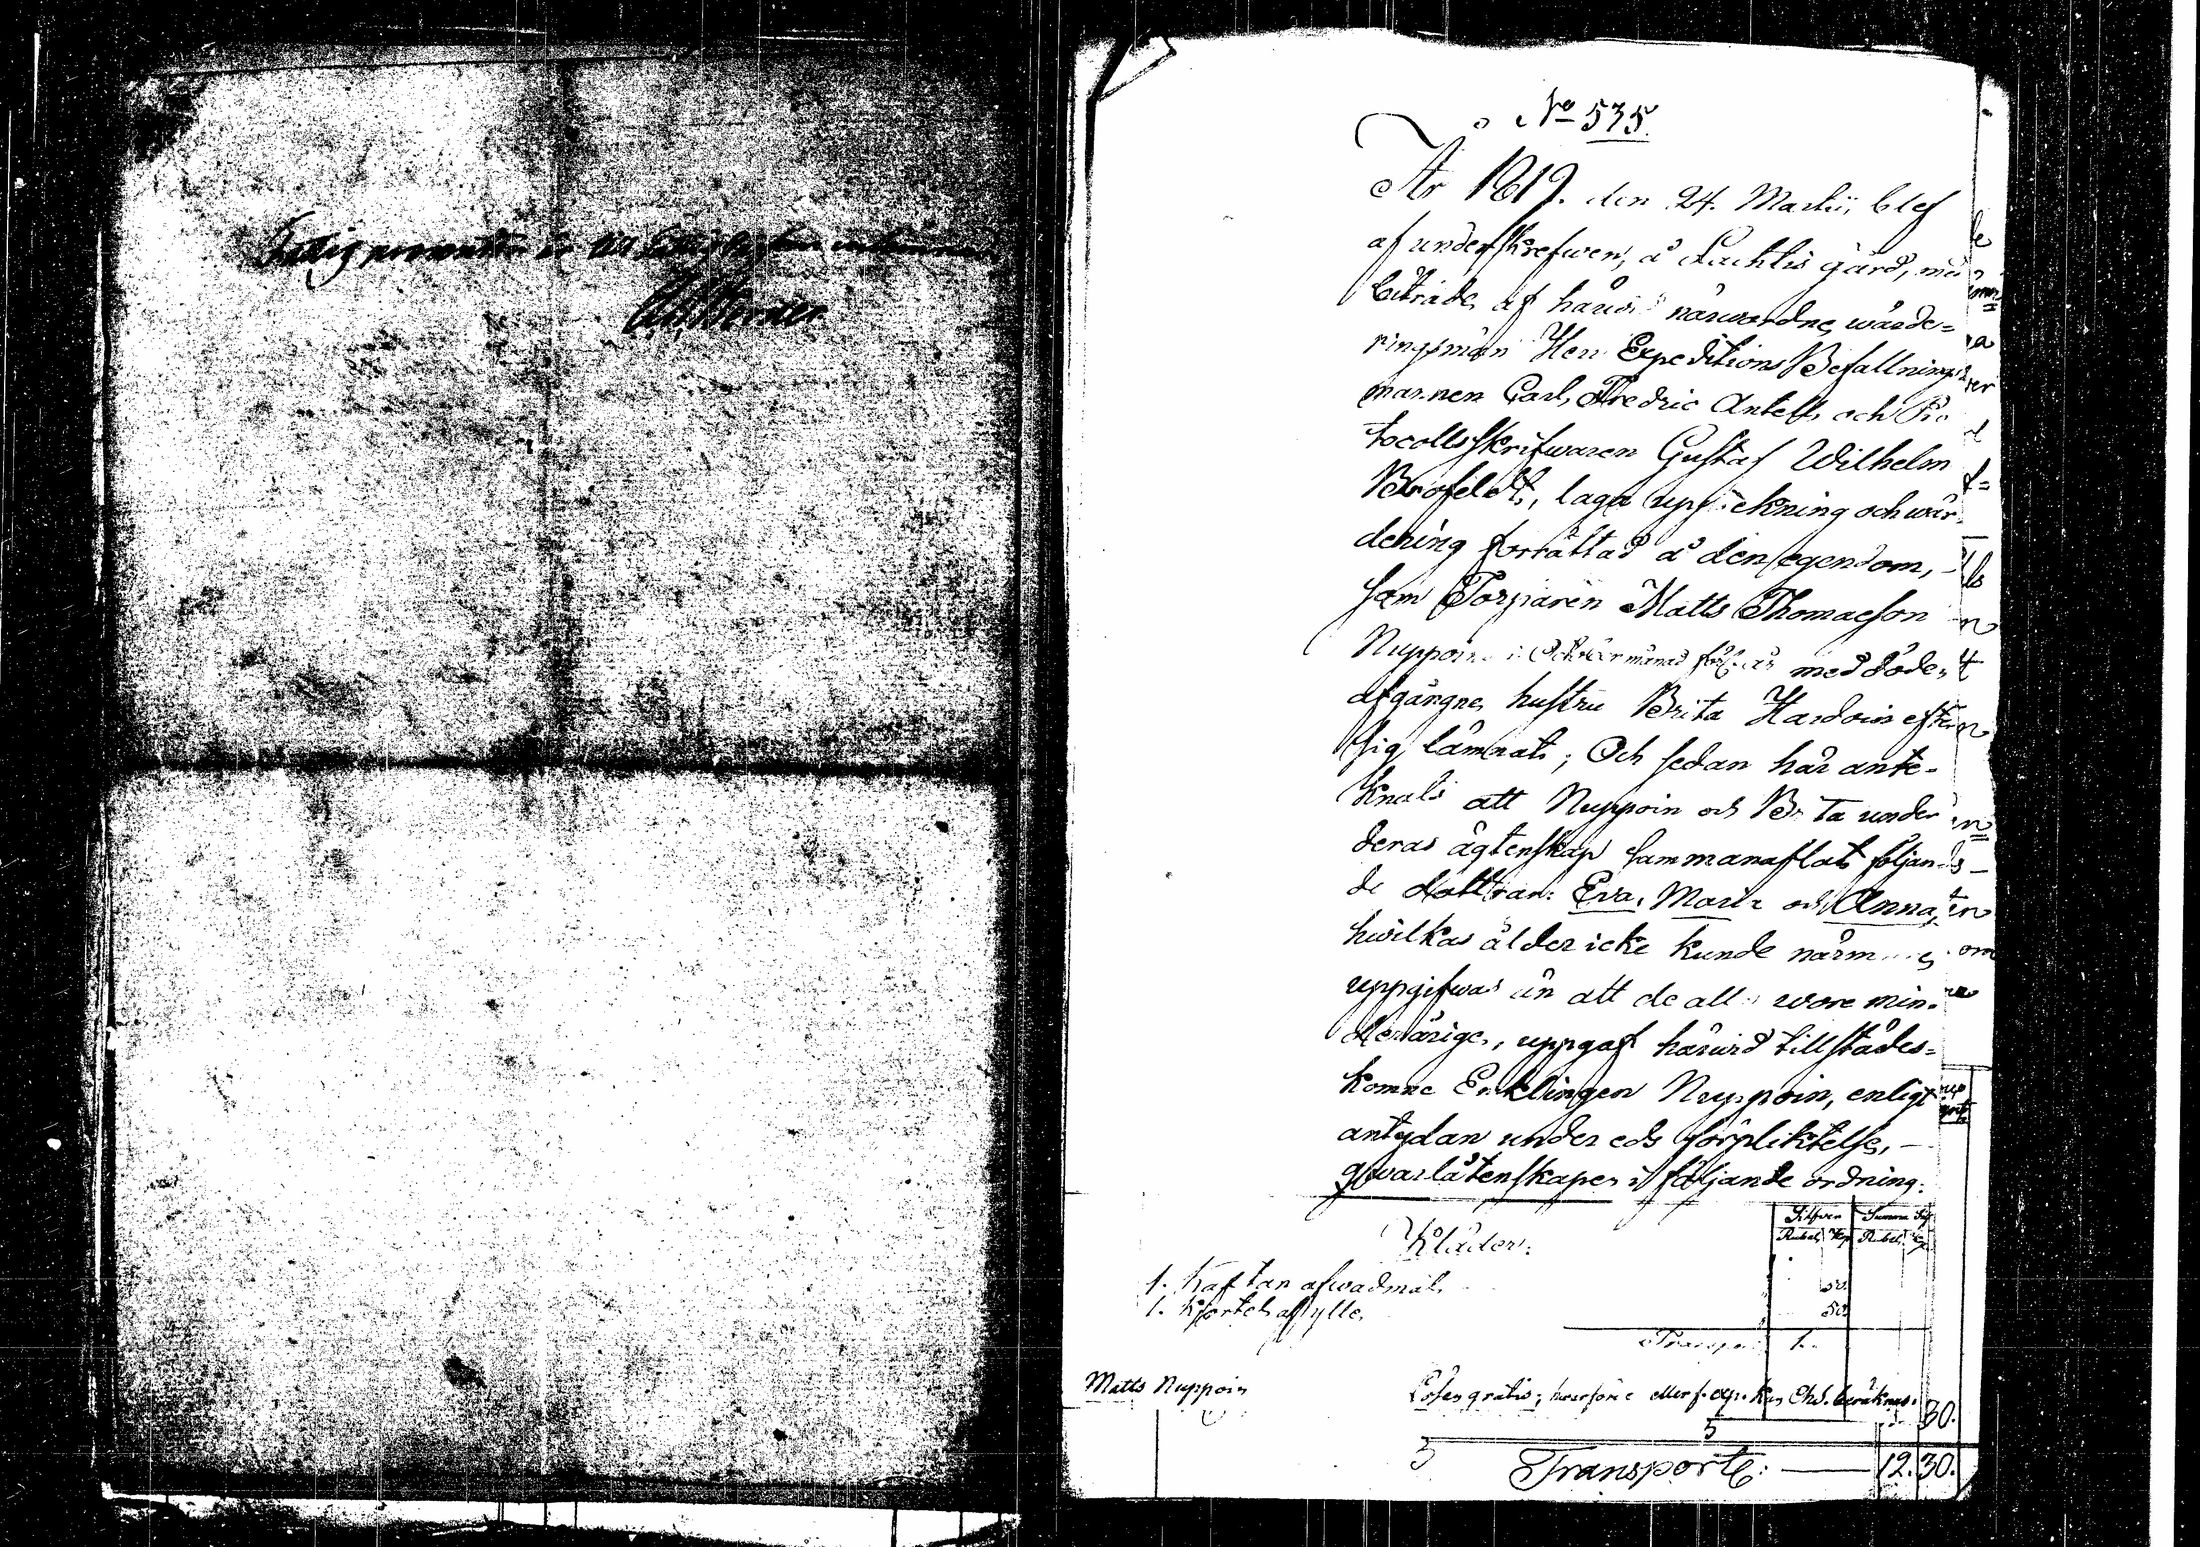 Fattig procenten är till
No 535.
År 1819. den 24. Martii, blef
af underskrefwen, å Lachtis gård, med
biträde af härwid närwordne wärde-
ringsmän Herr Expeditions Befallnings
mannen Carl Fredric Antell och Pro
tocollsskrifwaren Gustaf Wilhelm
Brofeldt, laga uppteckning och wär
dering förrättad å den egendom,
som Torparen Matts Thomaeson
Nuppoin i October månad med döde
afgångne hustru Brita Hardoin efter
sig lämnat; Och sedan här ante-
knats att Nuppoin och Brita under
deras ägtenskap sammanaflat följan
de döttrar: Eva, Maria och Anna,
hwilkas ålder icke kunde närmare
uppgifwas än att de alla wore min-
derårige, uppgaf härwid tillstädes-
komne Enklingen Nuppoin, enligt
antydan under eds förpliktelse,
qwarlåtenskapen i följande ordning:
Silfwer Summa Silf
Rubel Kop Rubel Cop
Kläder:
1. Kaftan af wadmal 50.
1. Kjortel af ylle 50
Transport 1.
Matts Nuppoin
Lösen gratis; beräknas.
30.
5
5 Transporte: 12. 30.